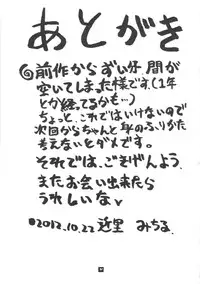 あとがき
◎前作からずいぶん間が
空いてしまった様です(1年
とか経ってるかも…)
ちょっと、これではいけないので
次回からちゃんと身のふりかた
考えないとダメです。
それでは、ごきげんよう。
またお会い出来たら
うれしいな
●2012.10.22 近里 みちる